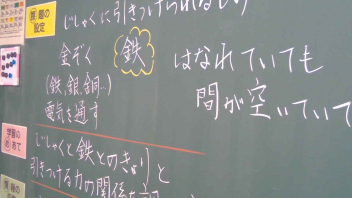 問題の
設定
じしゃくに引きつけられるもの
金ぞく
鉄
はなれていても
(鉄、銀、銅…)
間が空いていて
電気を通す
学習の
めあて
じしゃくと鉄とのきょりと
引きつける力の関係を調